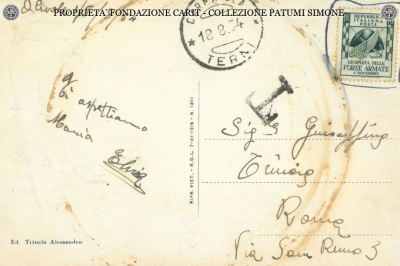 PROPRIETA' FONDAZIONE CARIT - COLLEZIONE PATUMI SIMONE
18.8.54
* TERNI *
REPUBBLICA
ITALIANA
POSTE
GIORNATA DELLE
FORZE ARMATE
4 NOVEMBRE
T
Vi aspettiamo
Maria
Elvira
RIPR. VIET. - R.D.L. 7-XI-1925 - N. 1950
Sig.
Giuseppina
Roma
Via San Remo 3
Ed Trincia Alessandro